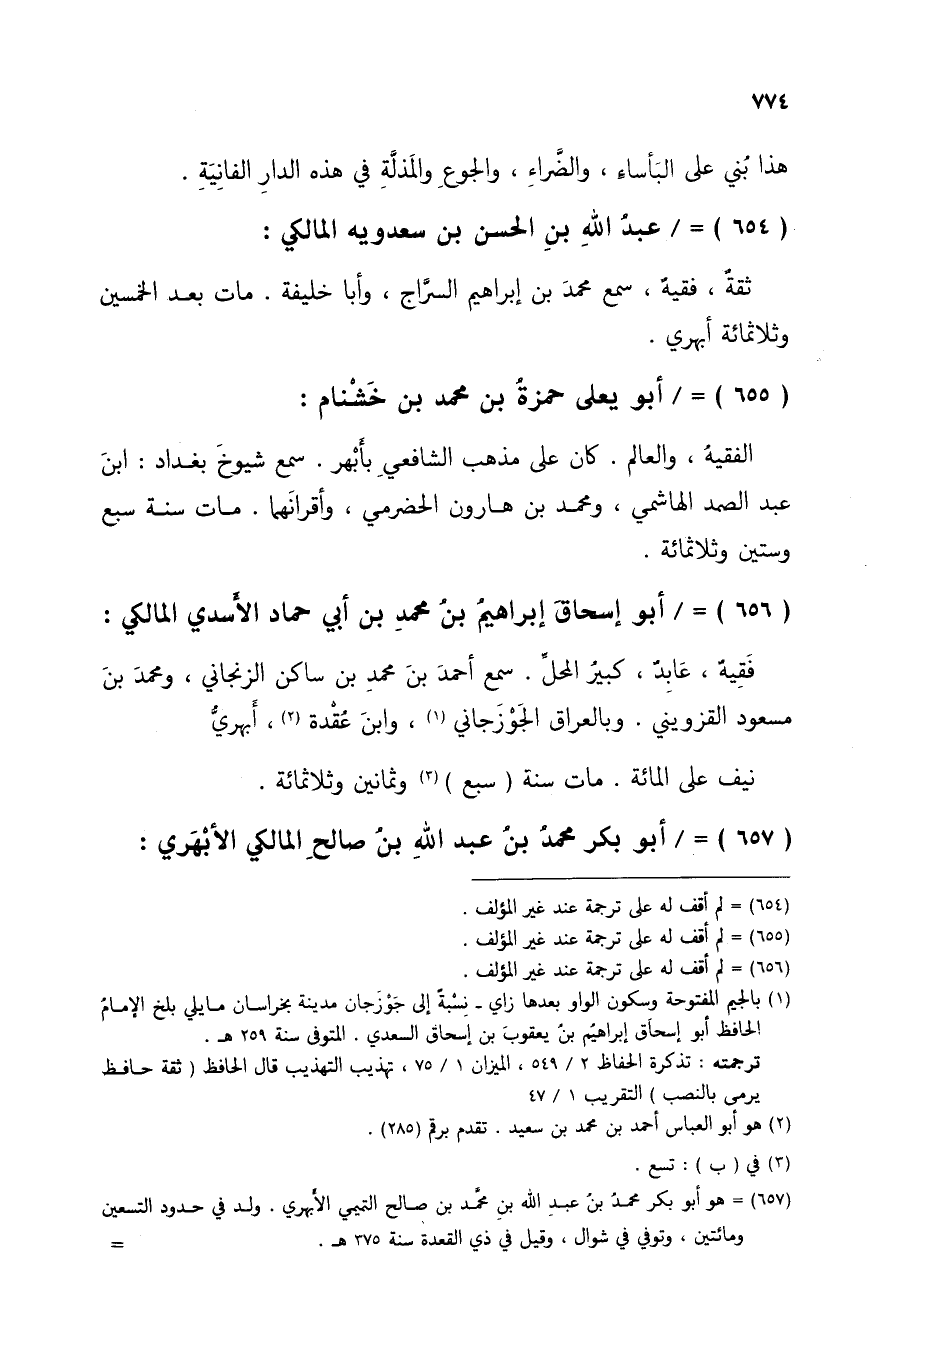 ٧٧٤
هذا بُني على البَأساء ، والضَّراءِ ، والجوعِ والمَذلَّةِ في هذه الدارِ الفانِيَةِ .
( ٦٥٤ ) = / عبدُ اللهِ بنِ الحسن بن سعدويه المالكي :
ثقةٌ ، فقيهٌ ، سمع محمدَ بن إبراهيم السرَّاج ، وأبا خليفة . مات بعد الخمسين
وثلاثمائة أبهري .
( ٦٥٥ ) = / أبو يعلى حمزةُ بن محمد بن خَشْنام :
الفقيهُ ، والعالم . كان على مذهب الشافعي بِأَبْهر . سمع شيوخَ بغداد : ابنَ
عبد الصمد الهاشمي ، ومحمد بن هارون الحضرمي ، وأقرانَهما . مات سنة سبع
وستين وثلاثمائة .
( ٦٥٦ ) = / أبو إسحاقَ إبراهيمُ بنُ محمدِ بن أبي حماد الأَسدي المالكي :
فَقِيهٌ ، عَابِدٌ ، كبيرُ المحلِّ . سمع أحمدَ بنَ محمدِ بن ساكن الزنجاني ، ومحمدَ بنَ
مسعود القزويني . وبالعراق الجَوْزَجاني (١) ، وابنَ عُقْدة (٢) ، أَبهريٌّ
نيف على المائة . مات سنة ( سبع ) (٣) وثمانين وثلاثمائة .
( ٦٥٧ ) = / أبو بكر محمدُ بنُ عبد اللهِ بنُ صالحِ المالكي الأبْهَري :
(٦٥٤) = لم أقف له على ترجمة عند غير المؤلف .
(٦٥٥) = لم أقف له على ترجمة عند غير المؤلف .
(٦٥٦) = لم أقف له على ترجمة عند غير المؤلف .
(١) بالجيم المفتوحة وسكون الواو بعدها زاي ـ نِسْبةً إلى جَوْزَجان مدينة بخراسان مايلي بلخ الإمامُ
الحافظ أبو إسحاق إبراهيمُ بنُ يعقوبَ بن إسحاق السعدي . المتوفى سنة ٢٥٩ هـ .
ترجمته : تذكرة الحفاظ ٢ / ٥٤٩ ، الميزان ١ / ٧٥ ، تهذيب التهذيب قال الحافظ ( ثقة حافظ
يرمى بالنصب ) التقريب ١ / ٤٧
(٢) هو أبو العباس أحمد بن محمد بن سعيد . تقدم برقم (٢٨٥) .
(٣) في ( ب ) : تسع .
(٦٥٧) = هو أبو بكر محمدُ بنُ عبدِ الله بنِ محمَّد بن صالح التميمي الأَبهري . ولد في حدود التسعين
ومائتين ، وتوفي في شوال ، وقيل في ذي القعدة سنة ٣٧٥ هـ .
=